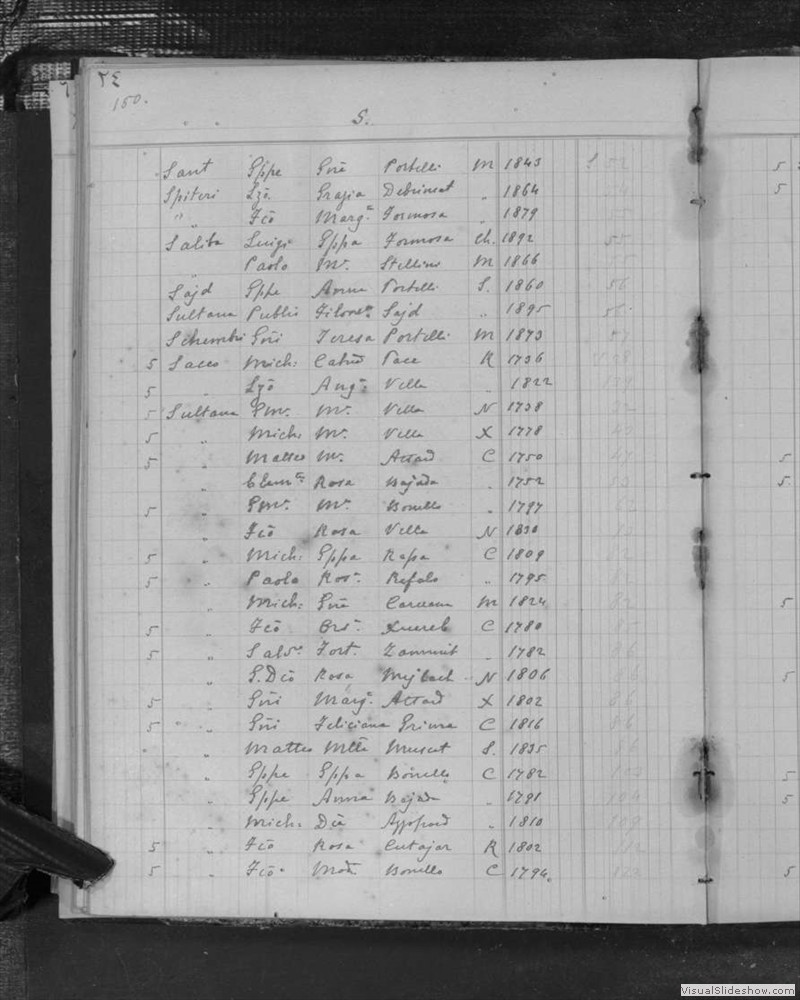 150.
S.
Sant Gppe Gnã Portelli M 1843
Spiteri Lzõ Grazia Debrincat „ 1864
„ „ Fcõ Margª Formosa „ 1879
Saliba Luigi Gppa Formosa Ch. 1892 55
„ Paolo Mª Stellini M 1866 55
Sajd Gppe Anna Portelli S. 1860 56
Sultana Publio Filomª Sajd „ 1895 56
Schembri Gnñi Teresa Portelli M 1873
5 Sacco Mich: Catnã Pace R 1736
5 „ Lzõ Angª Vella „ 1822
5 Sultana Gmª Mª Vella N 1738
5 „ Mich: Mª Vella X 1778
5 „ Matteo Mª Attard C 1750 5
„ Clemte Rosa Bajada „ 1752 5
5 „ Gmª Mª Bonello „ 1797
„ Fcõ Rosa Vella N 1830
5 „ Mich: Gppa Rapa C 1809
5 „ Paolo Rosª Refalo „ 1795
„ Mich: Gnã Caruana M 1824 5
5 „ Fcõ Orsª Xuereb C 1780
5 „ Salvª Fort. Zammit „ 1782
„ G.Dcõ Rosa Mejlach N 1806 5
5 „ Gnñi Margª Attard X 1802
5 „ Gnñi Feliciana Grima C 1816
„ Matteo Mttã Muscat S. 1835
„ Gppe Gppa Bonello C 1782 5
„ Gppe Anna Bajada „ 1791 5
„ Mich: Dcã „ 1810
5 „ Fcõ Rosa Cutajar R 1802
5 „ Fcõ Bonello C 1794 5
VisualSlideshow.com